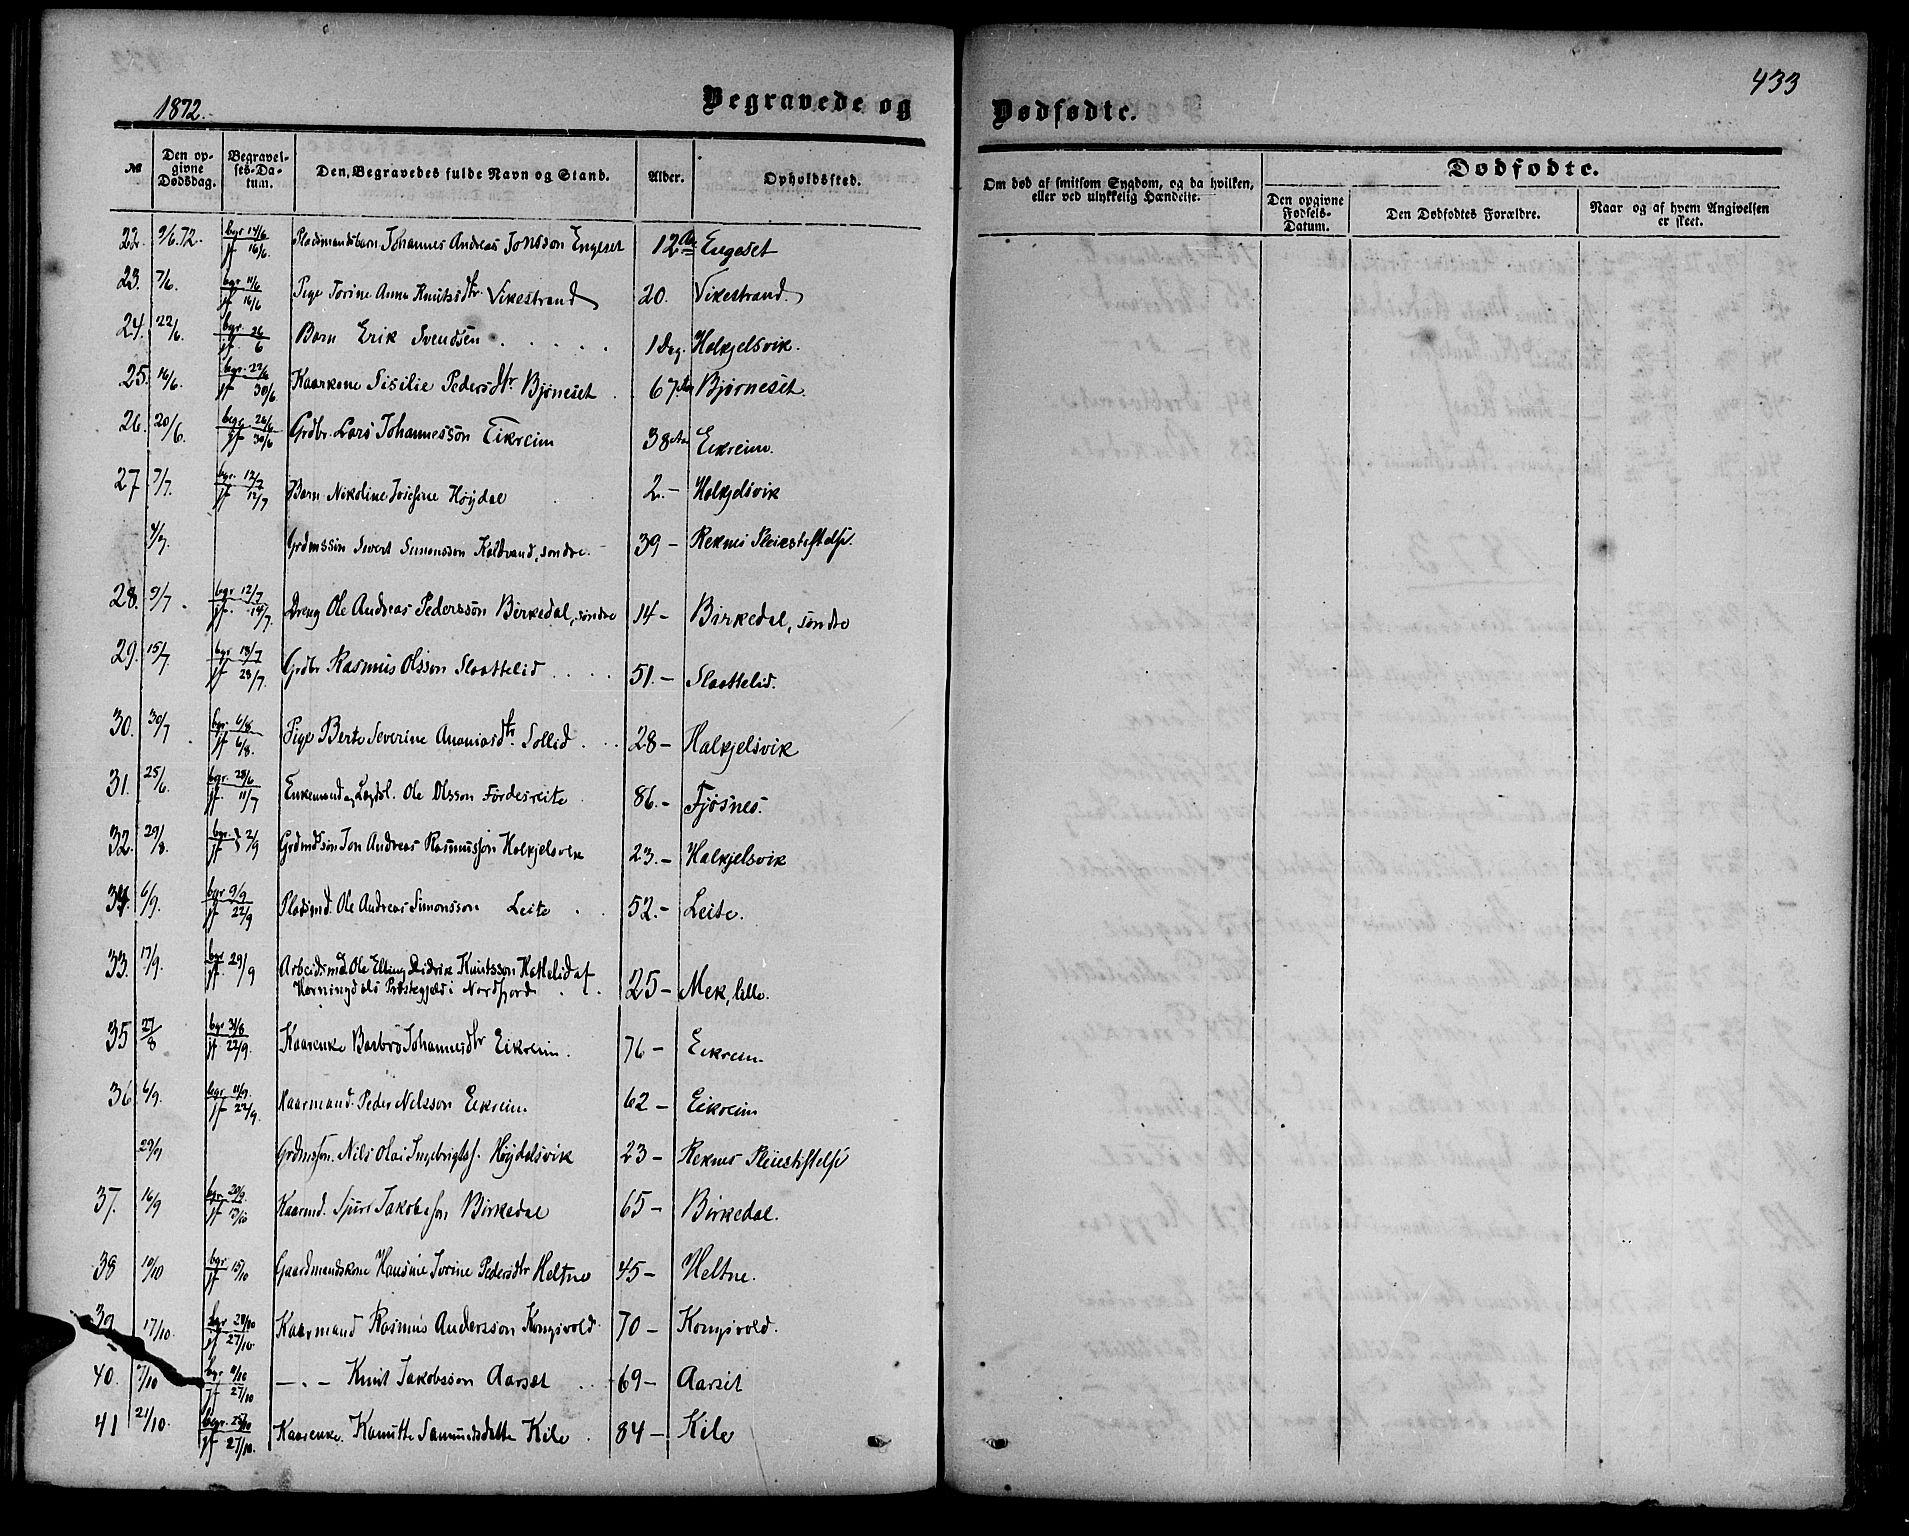 1872.
Begravede og
№
Den opgivne Dødsdag.
Begravelses-Datum.
Den Begravedes fulde Navn og Stand.
Alder.
Opholdssted.
22. 9/6.72. bgr 14/6 jf 16/6. Pladsmandsbarn Johannes Andreas Jonsson Engeset 12 Aar Engeset
23. 7/6. bgr 11/6 jf 16/6 Pige Jorine Anna Knutsdtr. Vikestrand 20. Vikestrand.
24. 22/6. bgr. 26 jf. 6 Barn Erik Svendsen 1 Dag. Halkjelsvik.
25. 16/6. bgr. 22/6 jf 30/6. Kaarkone Sisilie Pedersdtr. Bjørneset 67 Aar Bjørneset.
26. 20/6. bgr. 26/6 jf 30/6 Grdbr. Lars Johannessøn Eikreim 38 Aar Eikreim.
27 7/7. bgr. 12/7 jf 12/7 Barn Nikoline Josefine Høydal 2.- Halkjelsvik
4/7. Grdmssøn Sivert Simonssøn Kaldvand, søndre. 39 - Reknes Pleiestiftelse.
28. 9/7. bgr 12/7 jf. 14/7. Dreng Ole Andreas Pederssøn Birkedal, søndre 14 - Birkedal, søndre
29. 15/7. bgr 18/7 jf 28/7. Grdbr Rasmus Olsson Slaattelid 51.- Slaattelid.
30. 30/7. bgr. 6/8 jf 6/8. Pige Berte Severine Ananiasdtr. Sollid 28 - Halkjelsvik
31. 25/6. bgr. 28/6 jf. 11/7 Enkemand og Lægdsl. Ole Olsson Fordesreite 86.- Fjøsnes.
32. 29/8. bgr. & jf 2/9 Grdmdsøn Jon Andreas Rasmussøn Halkjelsvik 23.- Halkjelsvik
34. 6/9. bgr 9/9 jf 22/9 Pladsmd. Ole Andreas Simonsson Leite 52.- Leite.
33. 17/9. bgr jf. 29/9 Arbeidsmd Ole Elling Didrik Knutsson Hattelid af
Horningdals Præstegjeld i Nordfjord 25 - Mek, lille.
35 27/8 bgr 31/8 jf 22/9. Kaarenke Barbro Johannesdtr Eikreim. 76 - Eikreim
36 6/9. bgr 11/9. jf 22/9. Kaarmand. Peder Nilsson Eikreim 62 - Eikreim
29/9 Grdmssøn. Nils Olai Ingebrigtss. Høydalsvik 23 - Reknes Pleiestiftelse
37. 16/9 bgr 20/9. jf 13/10 Kaarmd. Sjurs Jakobssøn Birkedal 65 - Birkedal.
38 10/10 bgr jf 15/10 Gaardmandskone Hansine Jorine Pedersdtr Heltne 45 - Heltne.
39 17/10. bgr 20/10 jf 27/10. Kaarmand Rasmus Andersson Kongsvold 70 - Kongsvold.
40. 7/10 bgr 11/10 jf 27/10 - . - Knut Jakobsson Aarset 69 - Aarset
41 21/10. bgr. 25/10 jf 27/10. Kaarenke. Kanutte Samundsdatte Kile 84 - Kile
433
Dødfødte.
Om død af smitsom Sygdom, og da hvilken, eller ved ulykkelig Hændelse.
Dødfødte.
Den opgivne Fødsels-Datum.
Den Dødfødtes Forældre.
Naar og af hvem Angivelsen er skeet.